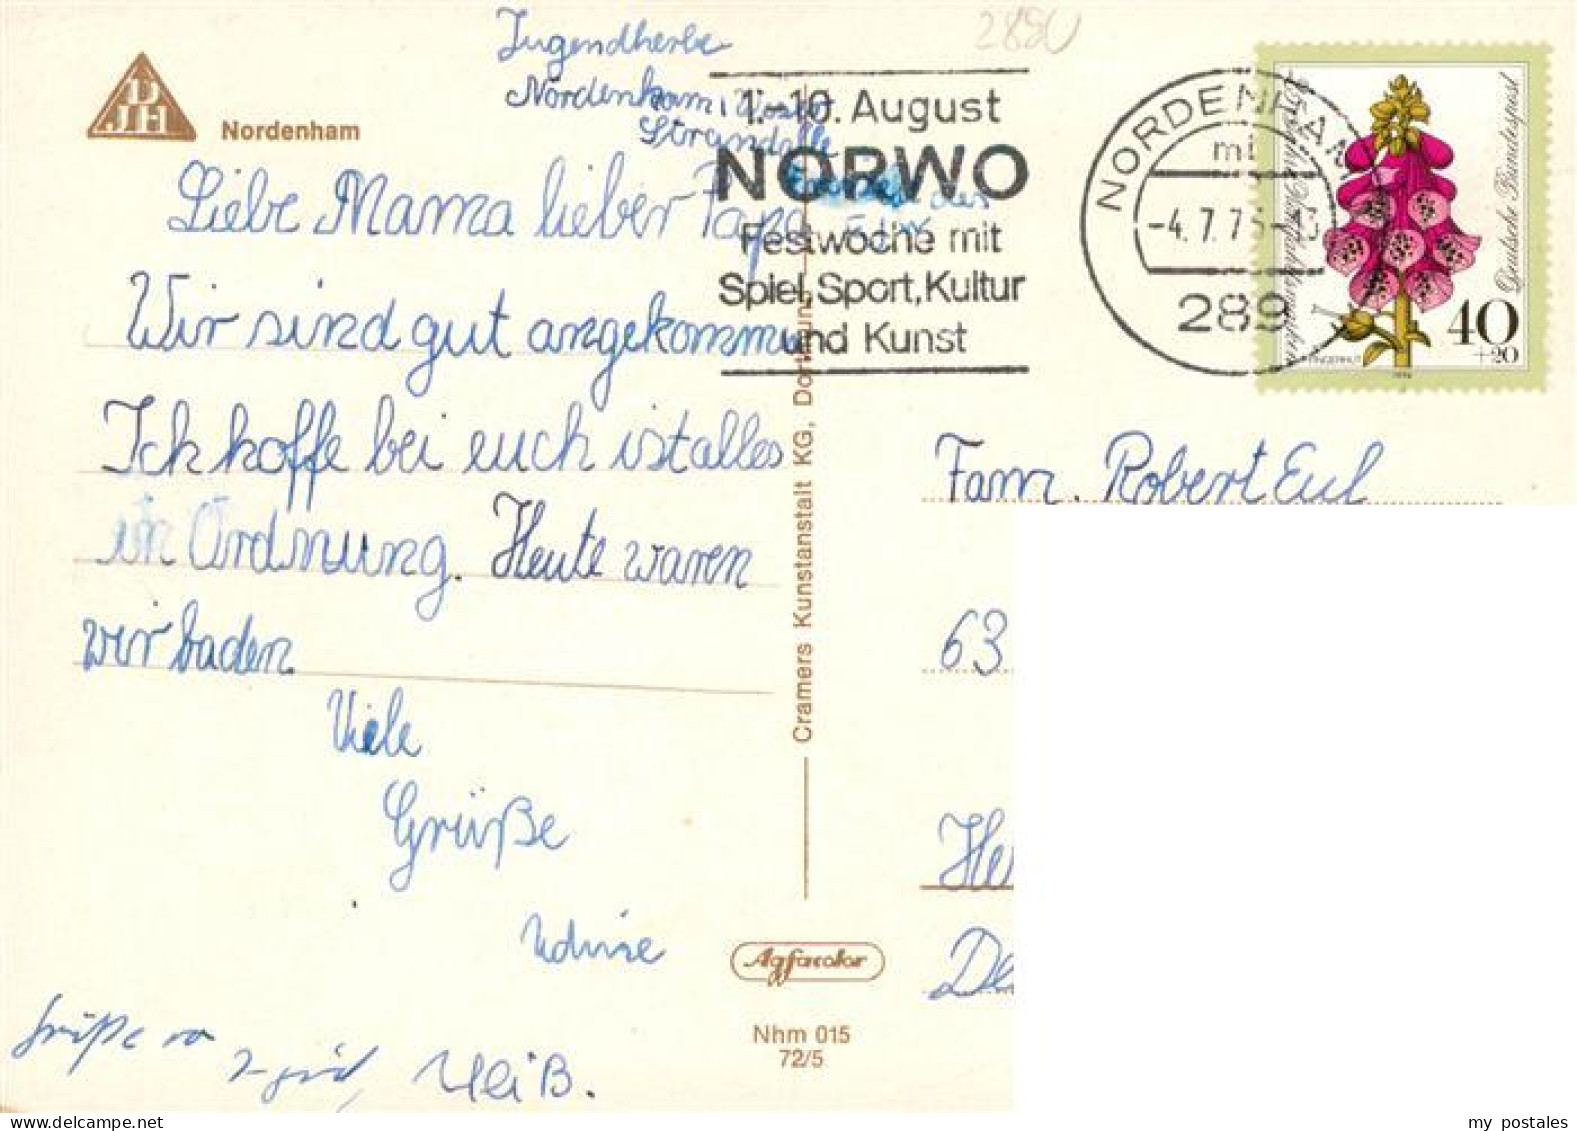 Jugendherbe
2890
Nordenham, Weser
Strandalle
DJH
Nordenham
1.-10. August
NORWO
Festwoche mit
Spiel, Sport, Kultur
und Kunst
NORDENHAM
-4.7.75
289
Deutsche Bundespost
40
+20
FINGERHUT
1974
Liebe Mama lieber Papa
Wir sind gut angekommen
Ich hoffe bei euch ist alles
in Ordnung. Heute waren
wir baden.
Viele
Grüße
Grüße
Cramers Kunstanstalt KG, Dortmund
Agfacolor
Nhm 015
72/5
Fam. Robert Eul
63
my postales